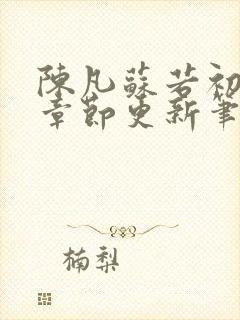 陳凡蘇若初
章節更新筆
楠梨